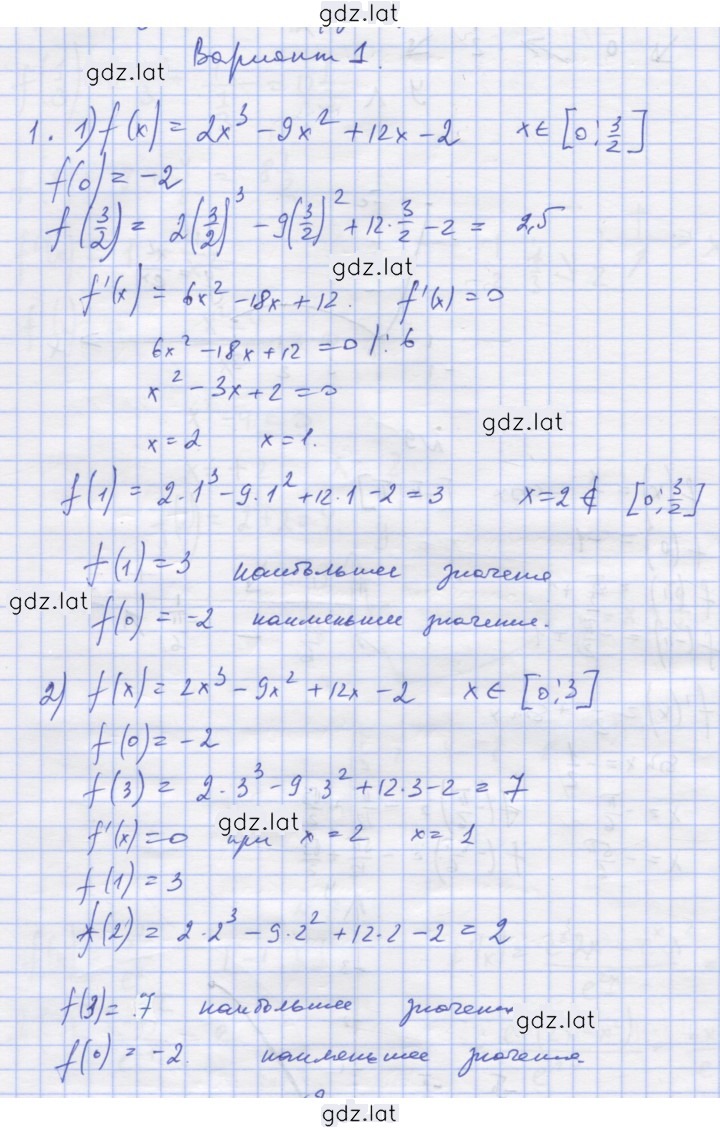 gdz.lat
Вариант 1.
gdz.lat
1. 1) f(x) = 2x³ - 9x² + 12x - 2 x ∈ [0; 3/2]
f(0) = -2
f(3/2) = 2(3/2)³ - 9(3/2)² + 12·3/2 - 2 = 2,5
gdz.lat
f'(x) = 6x² - 18x + 12. f'(x) = 0
6x² - 18x + 12 = 0 |: 6
x² - 3x + 2 = 0
gdz.lat
x = 2 x = 1.
f(1) = 2·1³ - 9·1² + 12·1 - 2 = 3 x = 2 ∉ [0; 3/2]
f(1) = 3 наибольшее значение
gdz.lat
f(0) = -2 наименьшее значение.
2) f(x) = 2x³ - 9x² + 12x - 2 x ∈ [0; 3]
f(0) = -2
f(3) = 2·3³ - 9·3² + 12·3 - 2 = 7
gdz.lat
f'(x) = 0 при x = 2 x = 1
f(1) = 3
f(2) = 2·2³ - 9·2² + 12·2 - 2 = 2
f(3) = 7 наибольшее значение
gdz.lat
f(0) = -2. наименьшее значение
gdz.lat